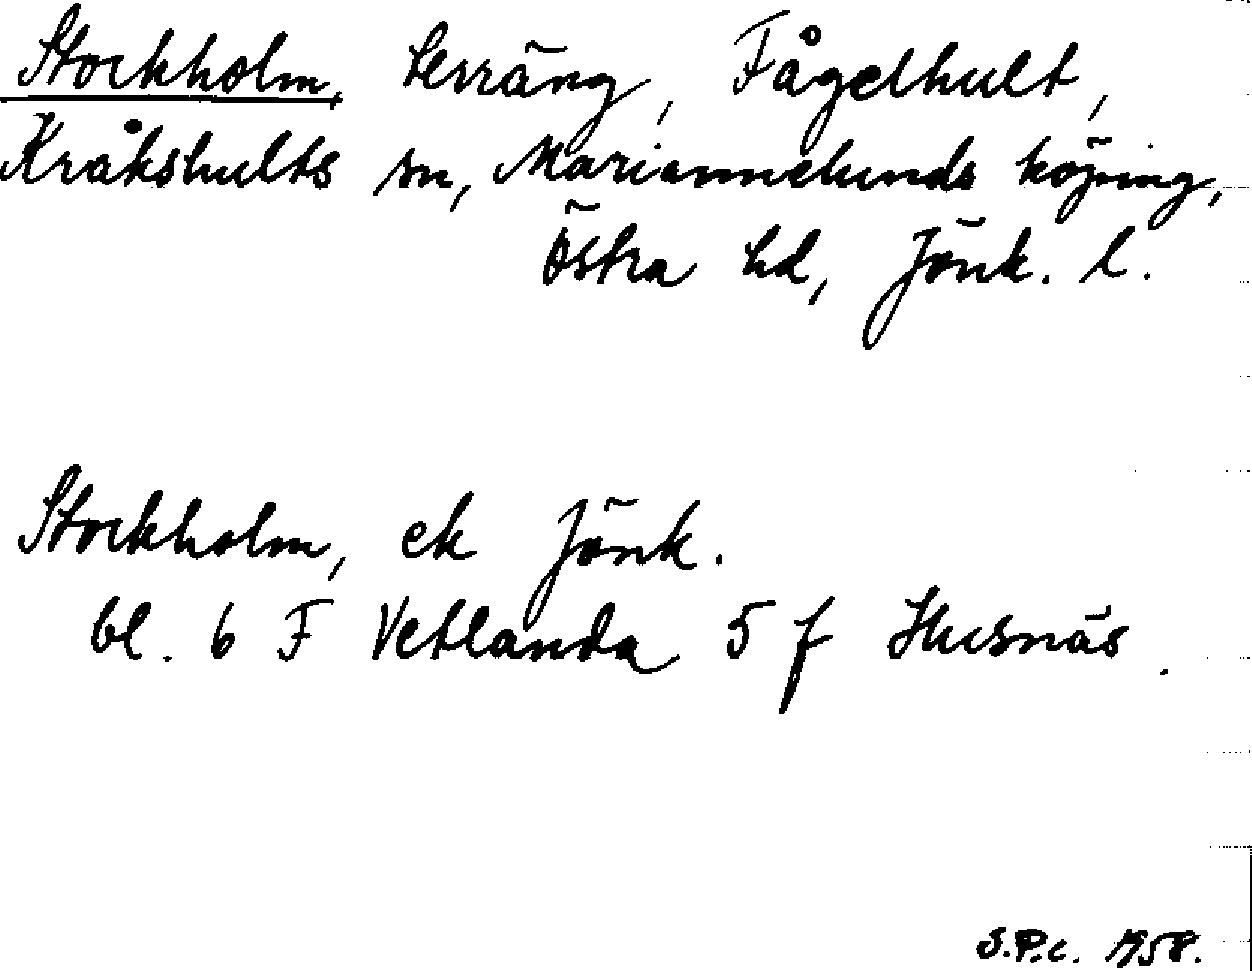 Stockholm, terräng, Fågelhult,
Kråkshults sn, Mariannelunds köping,
Östra hd, Jönk. l.
Stockholm, ek Jönk.
bl. 6 F Vetlanda 5 f Husnäs.
S.P.C. 1958.